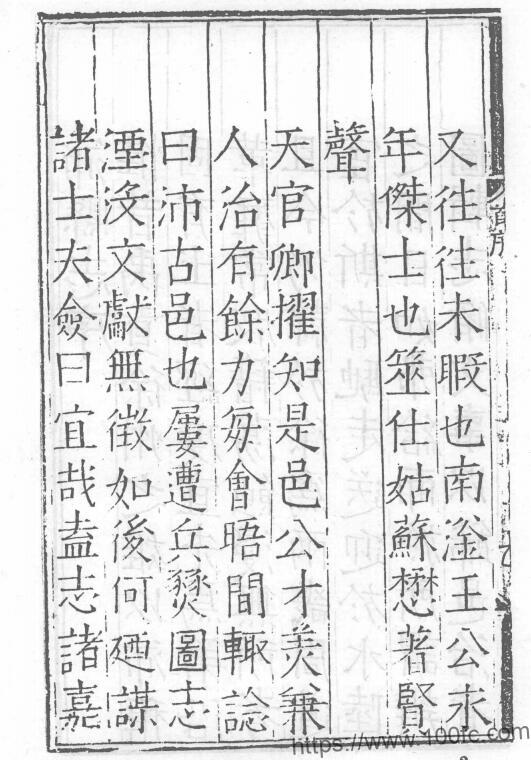 又往往未暇也南滏王公永
年傑士也筮仕姑蘇懋著賢
聲
天官卿擢知是邑公才羙兼
人治有餘力每會晤間輙諗
曰沛古邑也屢遭兵燹圖志
湮没文獻無徵如後何廼謀
諸士夫僉曰宜哉盍志諸嘉
https://www.100fc.com